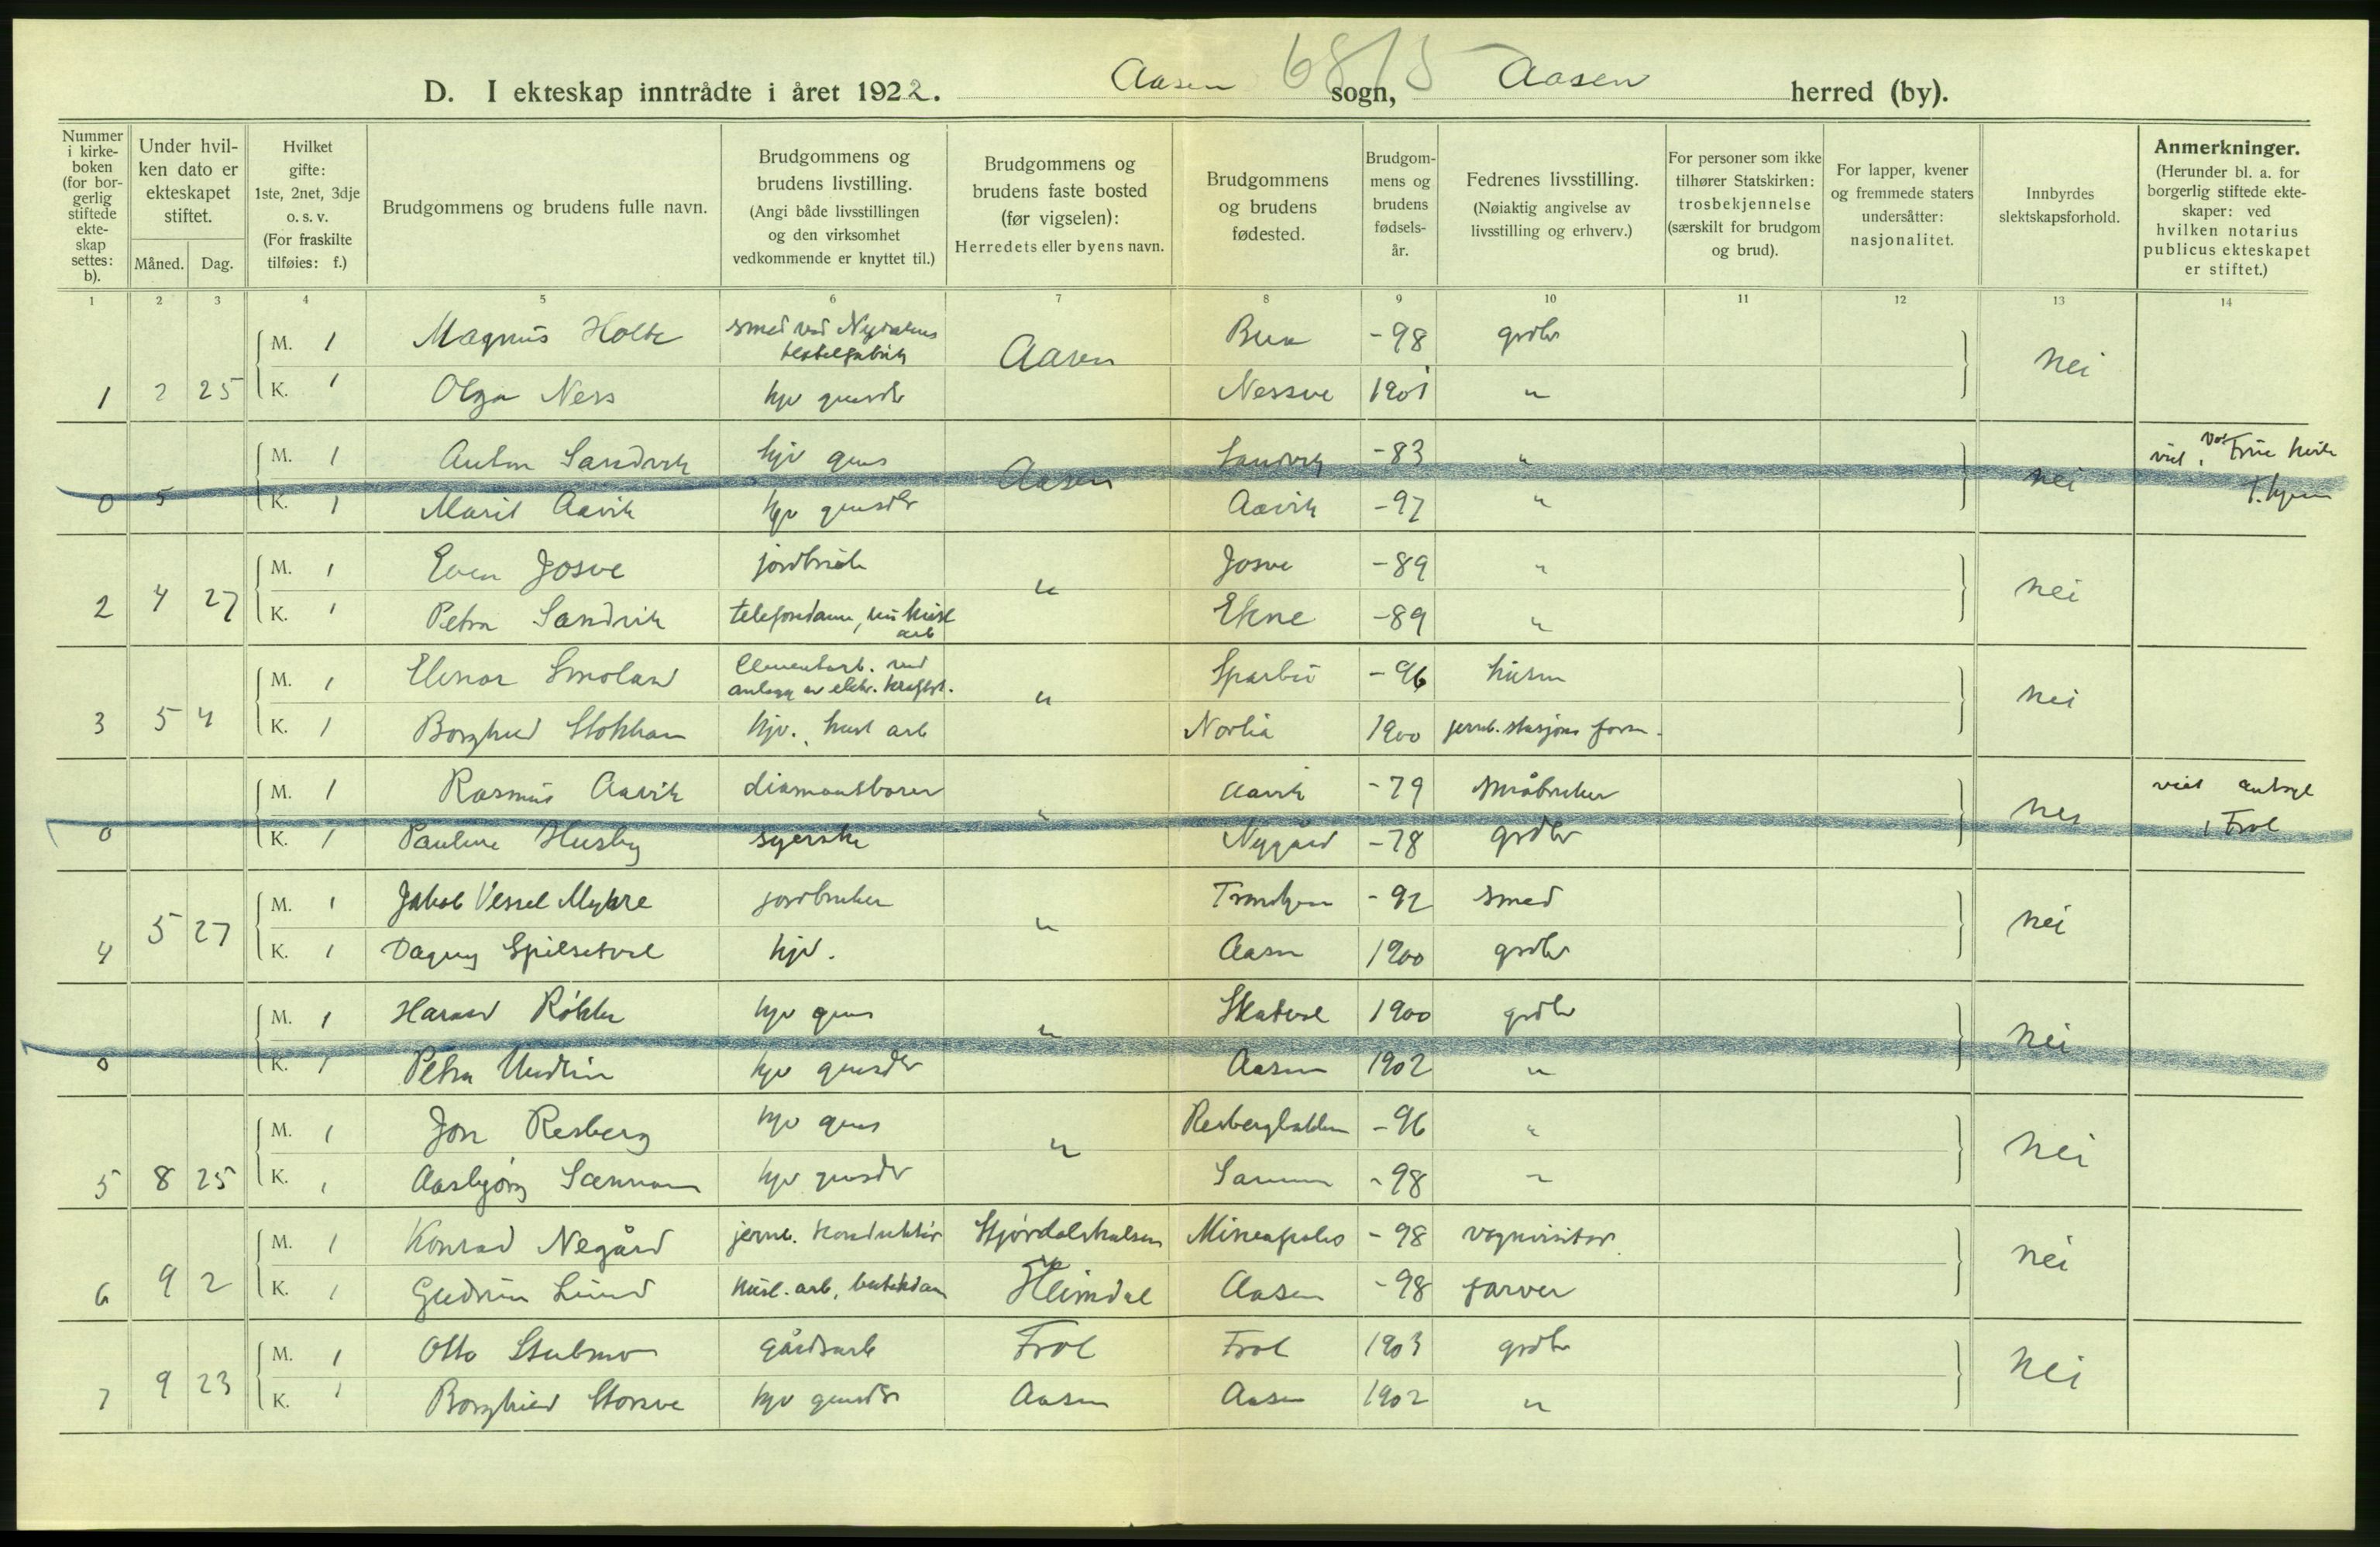 6815
D. I ekteskap inntrådte i året 1922. Aasen sogn, Aasen herred (by).
Nummer i kirke- boken (for bor- gerlig stiftede ekte- skap settes: b).
Under hvil- ken dato er ekteskapet stiftet.
Måned. Dag.
Hvilket gifte: 1ste, 2net, 3dje o. s. v. (For fraskilte tilføies: f.)
Brudgommens og brudens fulle navn.
Brudgommens og brudens livstilling. (Angi både livsstillingen og den virksomhet vedkommende er knyttet til.)
Brudgommens og brudens faste bosted (før vigselen): Herredets eller byens navn.
Brudgommens og brudens fødested.
Brudgom- mens og brudens fødsels- år.
Fedrenes livsstilling. (Nøiaktig angivelse av livsstilling og erhverv.)
For personer som ikke tilhører Statskirken: trosbekjennelse (særskilt for brudgom og brud).
For lapper, kvener og fremmede staters undersåtter: nasjonalitet.
Innbyrdes slektskapsforhold.
Anmerkninger. (Herunder bl. a. for borgerlig stiftede ekte- skaper: ved hvilken notarius publicus ekteskapet er stiftet.)
1 2 3 4 5 6 7 8 9 10 11 12 13 14
M. 1 Magnus Holte smed ved Aasen -98 grdbr nei
1 2 25 K. 1 Olga Ness hjv Nessve 1901 "
M. 1 Anton Sandvik hjv Aasen Sandvik -83 " nei
0 5 K. 1 Marit Aavik hjv Aavik -97 "
M. 1 Even Josve " Josve -89 " nei
2 4 27 K. 1 Petra Sandvik telefondame, Ekne -89 "
M. 1 Elenor Smolan " Sparbu -96 husm nei
3 5 4 K. 1 Borghild Stokkan hjv. husl arb 1900 jernb. stasjons form.
M. 1 Rasmus Aavik diamantborer " Aavik -79 småbruker nei
0 K. 1 Pauline Husby syerske Nygård -78 grdbr i Frol
M. 1 Jakob Vessel Myhre jordbruker " -92 smed nei
4 5 27 K. 1 Dagny hjv. Aasen 1900 grdbr
M. 1 hjv " 1900 grdbr nei
0 K. 1 Petra hjv Aasen 1902 "
M. 1 Jon Resberg hjv " -96 " nei
5 8 25 K. 1 Aasbjørg hjv -98 "
M. 1 Konrad Negård jernb. konduktør Stjørdalshalsen -98 vognvisitør nei
6 9 2 K. 1 Gudrun Lund husl. arb, Heimdal Aasen -98 farver
M. 1 Otto Stubmo gårdsarb Frol Frol 1903 grdbr nei
7 9 23 K. 1 Borghild Storsve hjv Aasen Aasen 1902 "